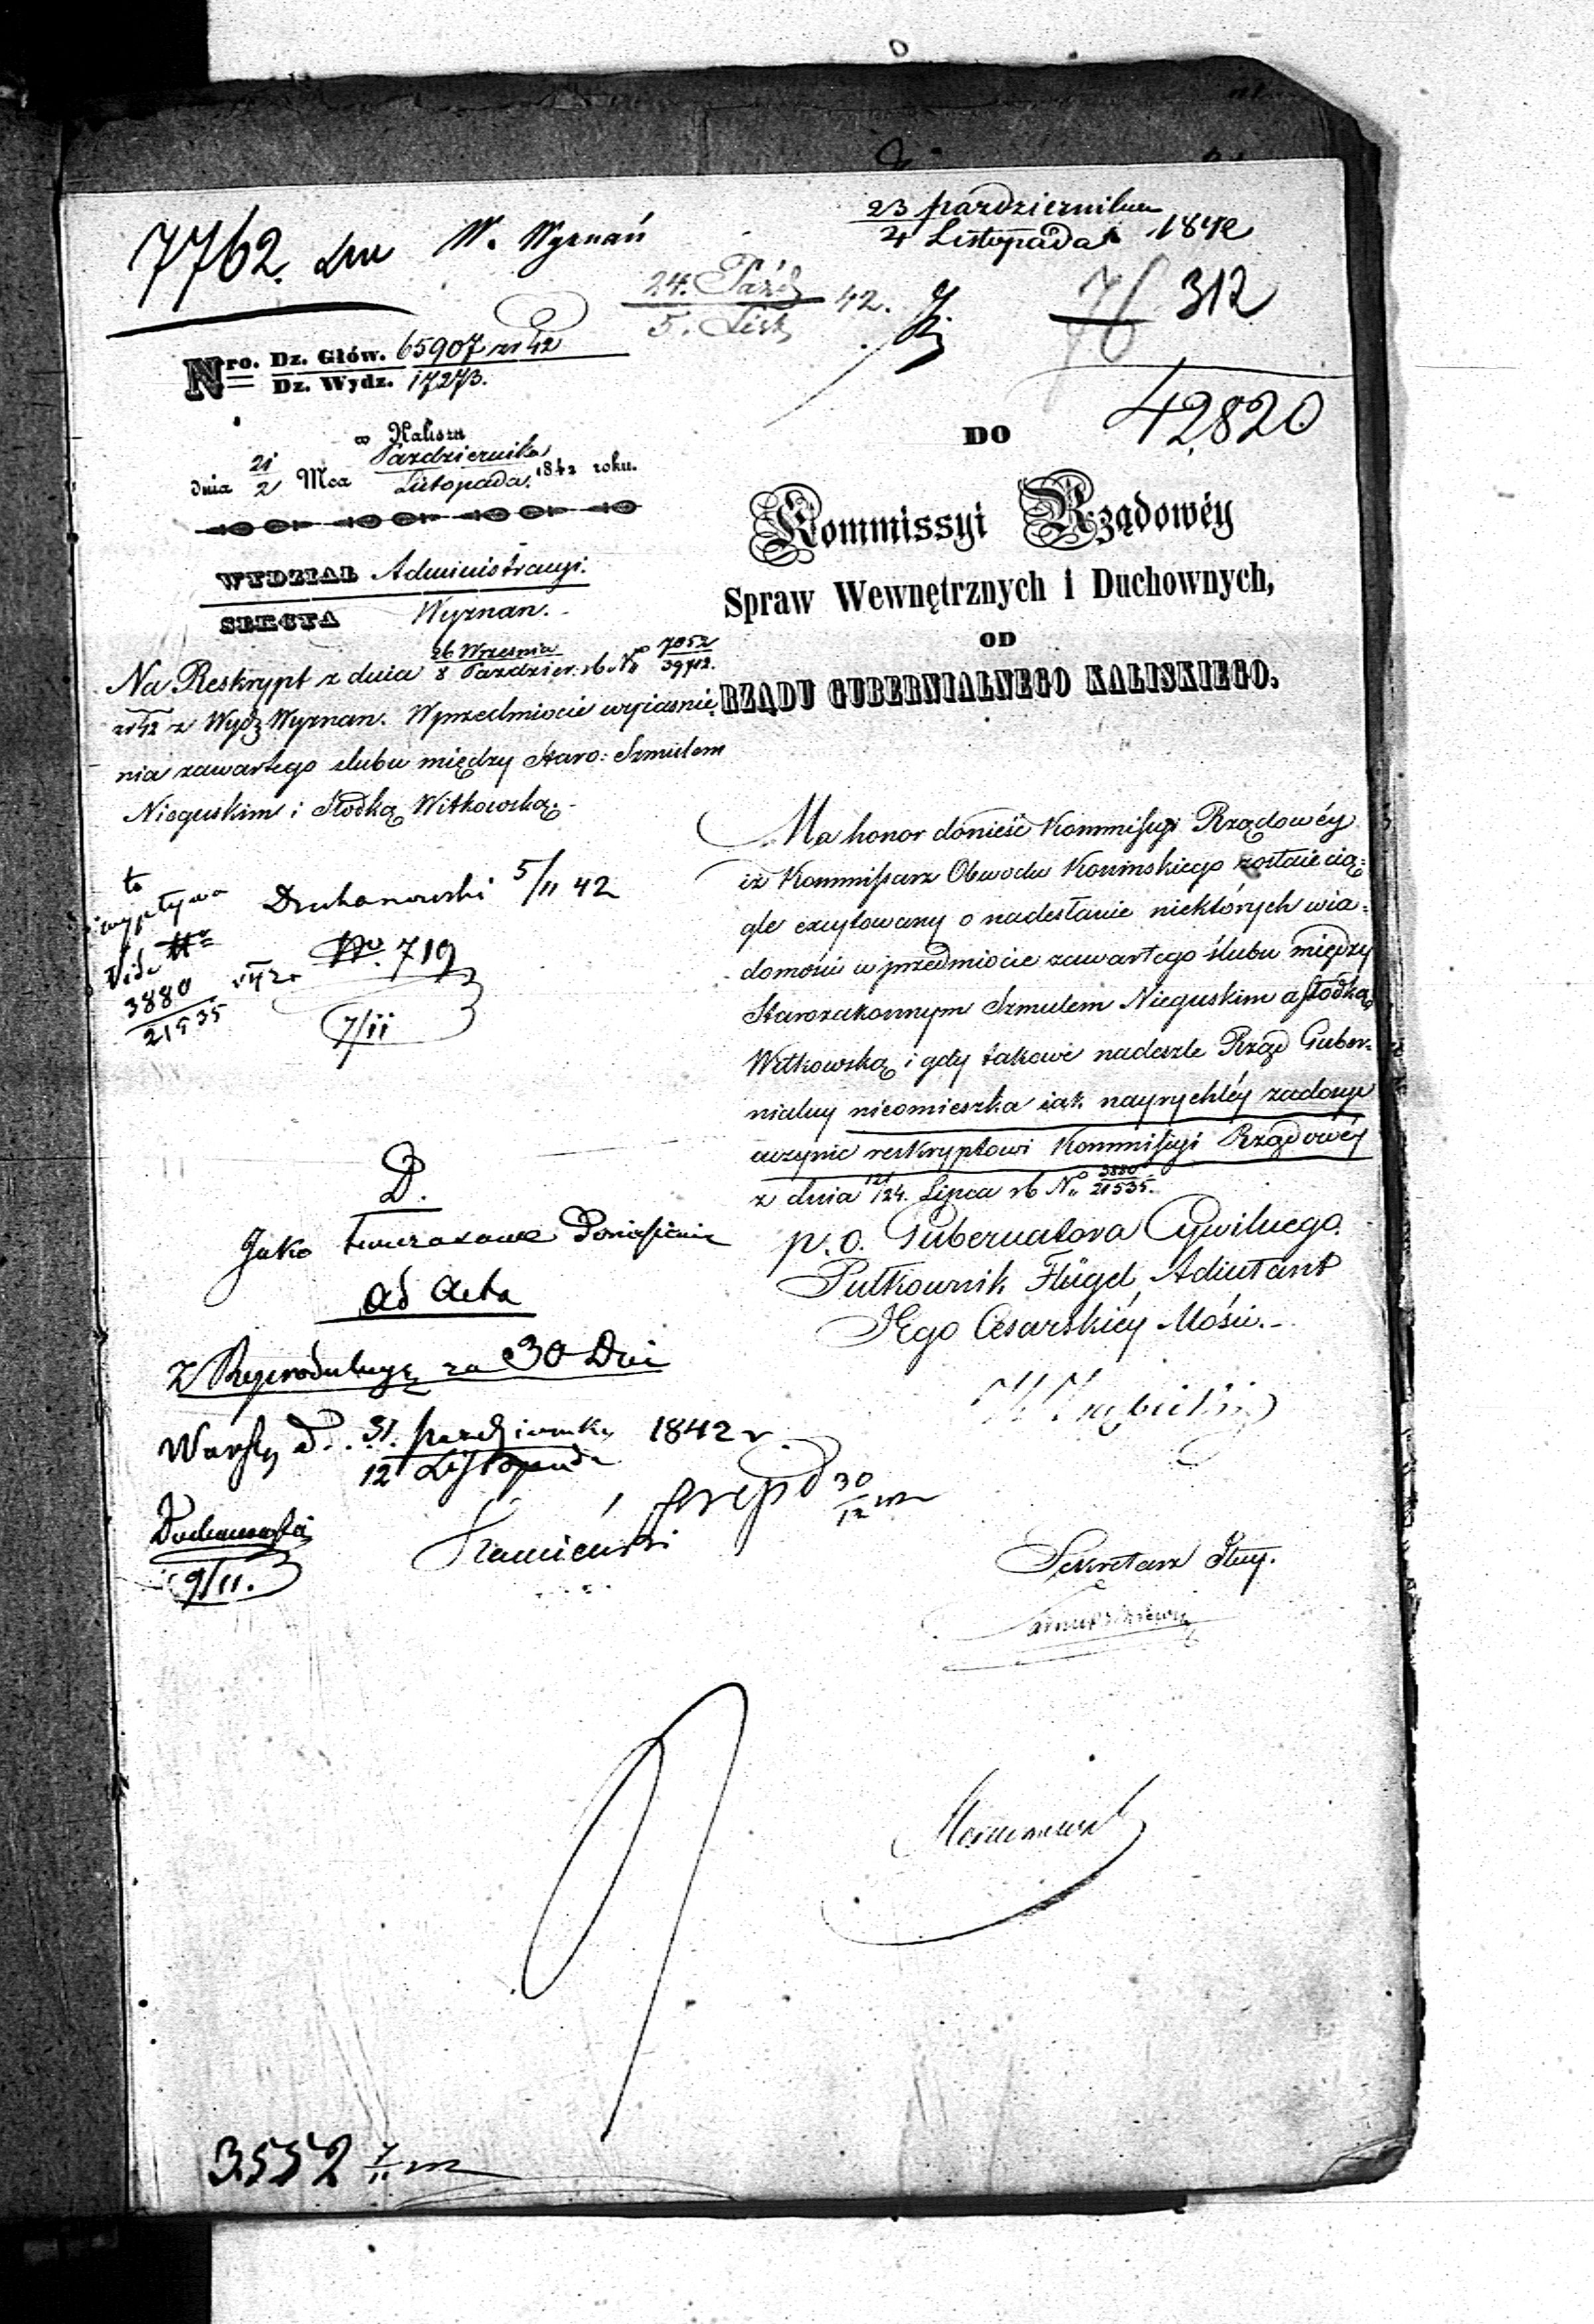 7762.
W. Wyznań
23 października
4 Listopada 1842
24. Paźd
5. List 42.
76 312
42820
Nro. Dz. Głów. 65907 zr 42
Dz. Wydz. 17273.
w Kaliszu
dnia 21/2 Mca Października/Listopada 1842 roku.
WYDZIAŁ Administracyi.
SEKCYA Wyznan.
Na Reskrypt z dnia 26 Września/8 Paździer. rb No 7052/39712.
zr 42 z Wydz Wyznan. W przedmiocie wyiaśnie
nia zawartego slubu między Staro: Szmulem
Nieguskim i Słodką Witkowską.-
to
wypływa
Vide No
3880
21535
Duchanowski 5/11 42
No. 719
7/11
DO
Kommissyi Rządowéy
Spraw Wewnętrznych i Duchownych,
OD
RZĄDU GUBERNIALNEGO KALISKIEGO.
Ma honor donieść Kommissyi Rządowéy
iż Kommissarz Obwodu Konińskiego zostaie cią=
gle excytowany o nadesłanie niektórych wia=
domości w przedmiocie zawartego ślubu między
Starozakonnym Szmulem Nieguskim a Słodką
Witkowską i gdy takowe nadeszle Rząd Guber=
nialny nieomieszka iak nayrychléy zadosyc
uczynic reskryptowi Kommissyi Rządowéy
z dnia 12/24. Lipca rb No 3880/21535.
p. o. Gubernatora Cywilnego.
Pułkownik Flügel Adiutant
JEgo Cesarskiéy Mości.-
D.
Jako tymczasowe Doniesienie
ad acta
z Reprodukcyą za 30 Dni
Warsz. D. 31. Października/12 Listopada 1842 r.
30
12
9/11.
Sekretarz Jlny.
3552 7/11